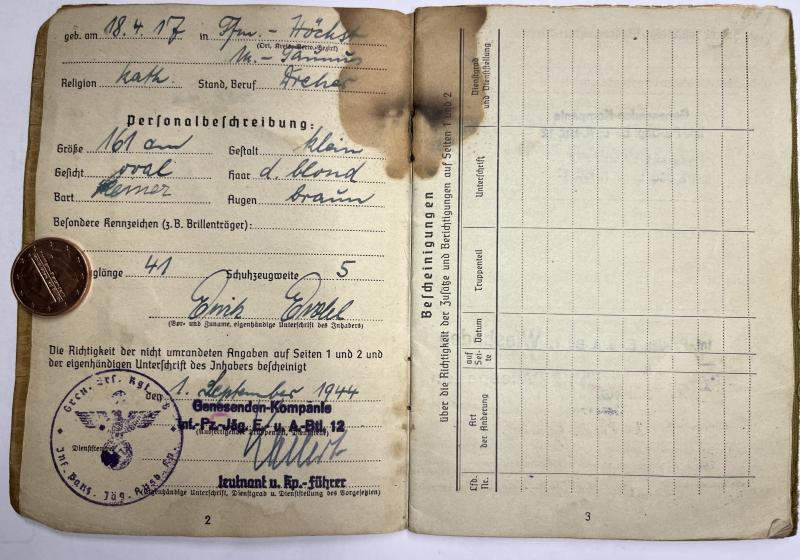 geb. am 18.4.17 in Ffm.-Höchst
(Ort, Kreis, Verw.-Bezirk)
m.-Taunus
Religion kath. Stand, Beruf Dreher
Personalbeschreibung:
Größe 161 cm Gestalt klein
Gesicht oval Haar d. blond
Bart keiner Augen braun
Besondere Kennzeichen (z. B. Brillenträger):
länge 41 Schuhzeugweite 5
(Vor- und Zuname, eigenhändige Unterschrift des Inhabers)
Die Richtigkeit der nicht umrandeten Angaben auf Seiten 1 und 2 und
der eigenhändigen Unterschrift des Inhabers bescheinigt
den 1. September 1944
Genesenden-Kompanie
Inf.-Pz.-Jäg. E.- u. A.-Btl. 12
Leutnant u. Kp.-Führer
(Eigenhändige Unterschrift, Dienstgrad u. Dienststellung des Vorgesetzten)
2
Bescheinigungen
über die Richtigkeit der Zusätze und Berichtigungen auf Seiten 1 und 2
Lfd. Nr.
Art der Änderung
auf Seite
Datum
Truppenteil
Unterschrift
Dienstgrad und Dienststellung
3